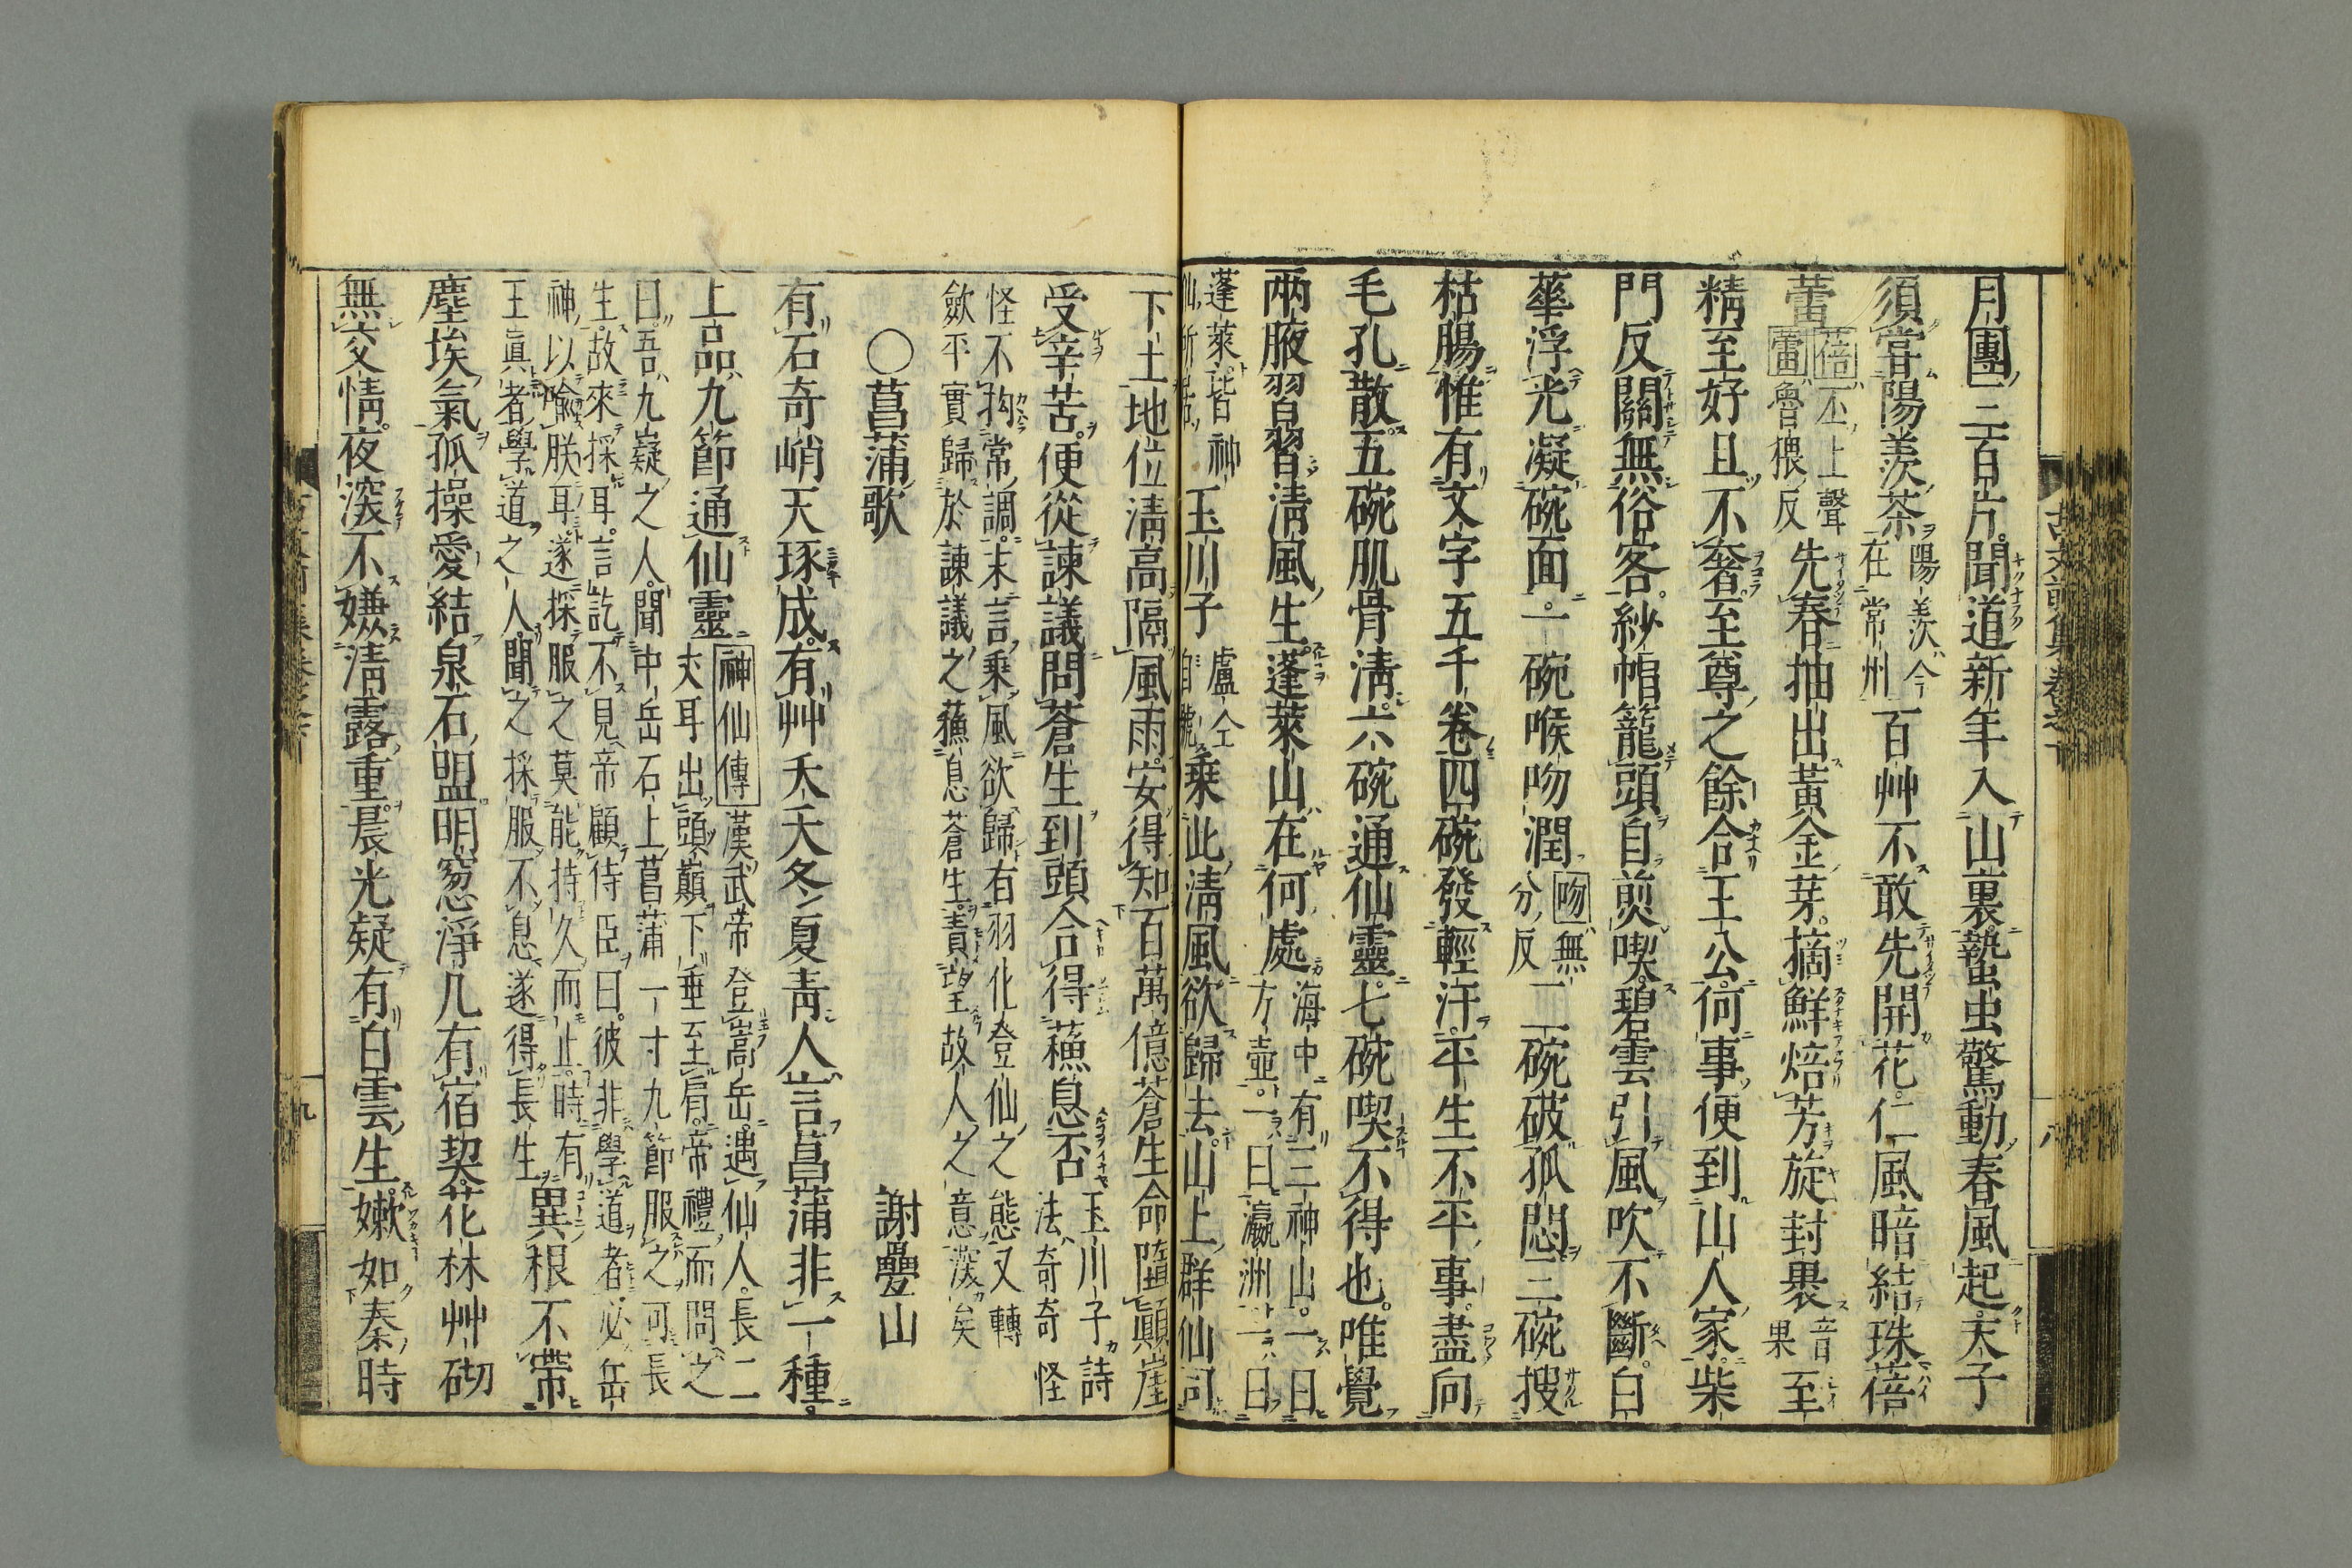 月團三百片聞道新年入山裏蟄虫驚動春風起天子
須嘗陽羨茶陽羨今在常州百艸不敢先開花仁風暗結珠蓓
蕾蓓丕上聲蕾魯猥反先春抽出黃金芽摘鮮焙芳旋封裹音果至
精至好且不奢至尊之餘合王公何事便到山人家柴
門反關無俗客紗帽籠頭自煎喫碧雲引風吹不斷白
華浮光凝碗面一碗喉吻潤吻無分反二碗破孤悶三碗搜
枯腸惟有文字五千卷四碗發輕汗平生不平事盡向
毛孔散五碗肌骨清六碗通仙靈七碗喫不得也唯覺
兩腋習習清風生蓬萊山在何處海中有三神山一曰方壺一曰瀛洲一曰
蓬萊皆神仙所居玉川子盧仝自號乘此清風欲歸去山上群仙司
下土地位清高隔風雨安得知百萬億蒼生命墮顚崖
受辛苦便從諫議問蒼生到頭合得蘓息否玉川子詩法奇奇怪
怪不拘常調末言乘風欲歸有羽化登仙之態又轉
歛平實歸於諫議之蘓息蒼生責望故人之意深矣
○菖蒲歌 謝疊山
有石奇峭天琢成有艸夭夭冬夏青人言菖蒲非一種
上品九節通仙靈神仙傳漢武帝登嵩岳遇仙人長二丈耳出頭巓下垂至肩帝禮而問之
曰吾九嶷之人聞中岳石上菖蒲一寸九節服之可長
生故來採耳言訖不見帝顧侍臣曰彼非學道者必岳
神以喩朕耳遂採服之莫能持久而止時有
王眞者學道之人聞之採服不息遂得長生異根不帶
塵埃氣孤操愛結泉石盟明窓淨几有宿契花林艸砌
無交情夜深不嫌清露重晨光疑有白雲生嫰如秦時
古文前集卷之下
八
九